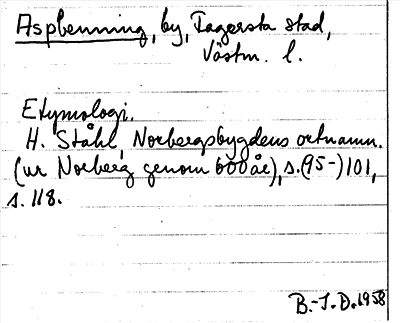 Aspbenning, by, Fagersta stad,
Västm. l.
Etymologi.
H. Ståhl, Norbergsbygdens ortnamn.
(ur Norberg genom 600 år), s.(95-)101,
s. 118.
B.-J.D.1958